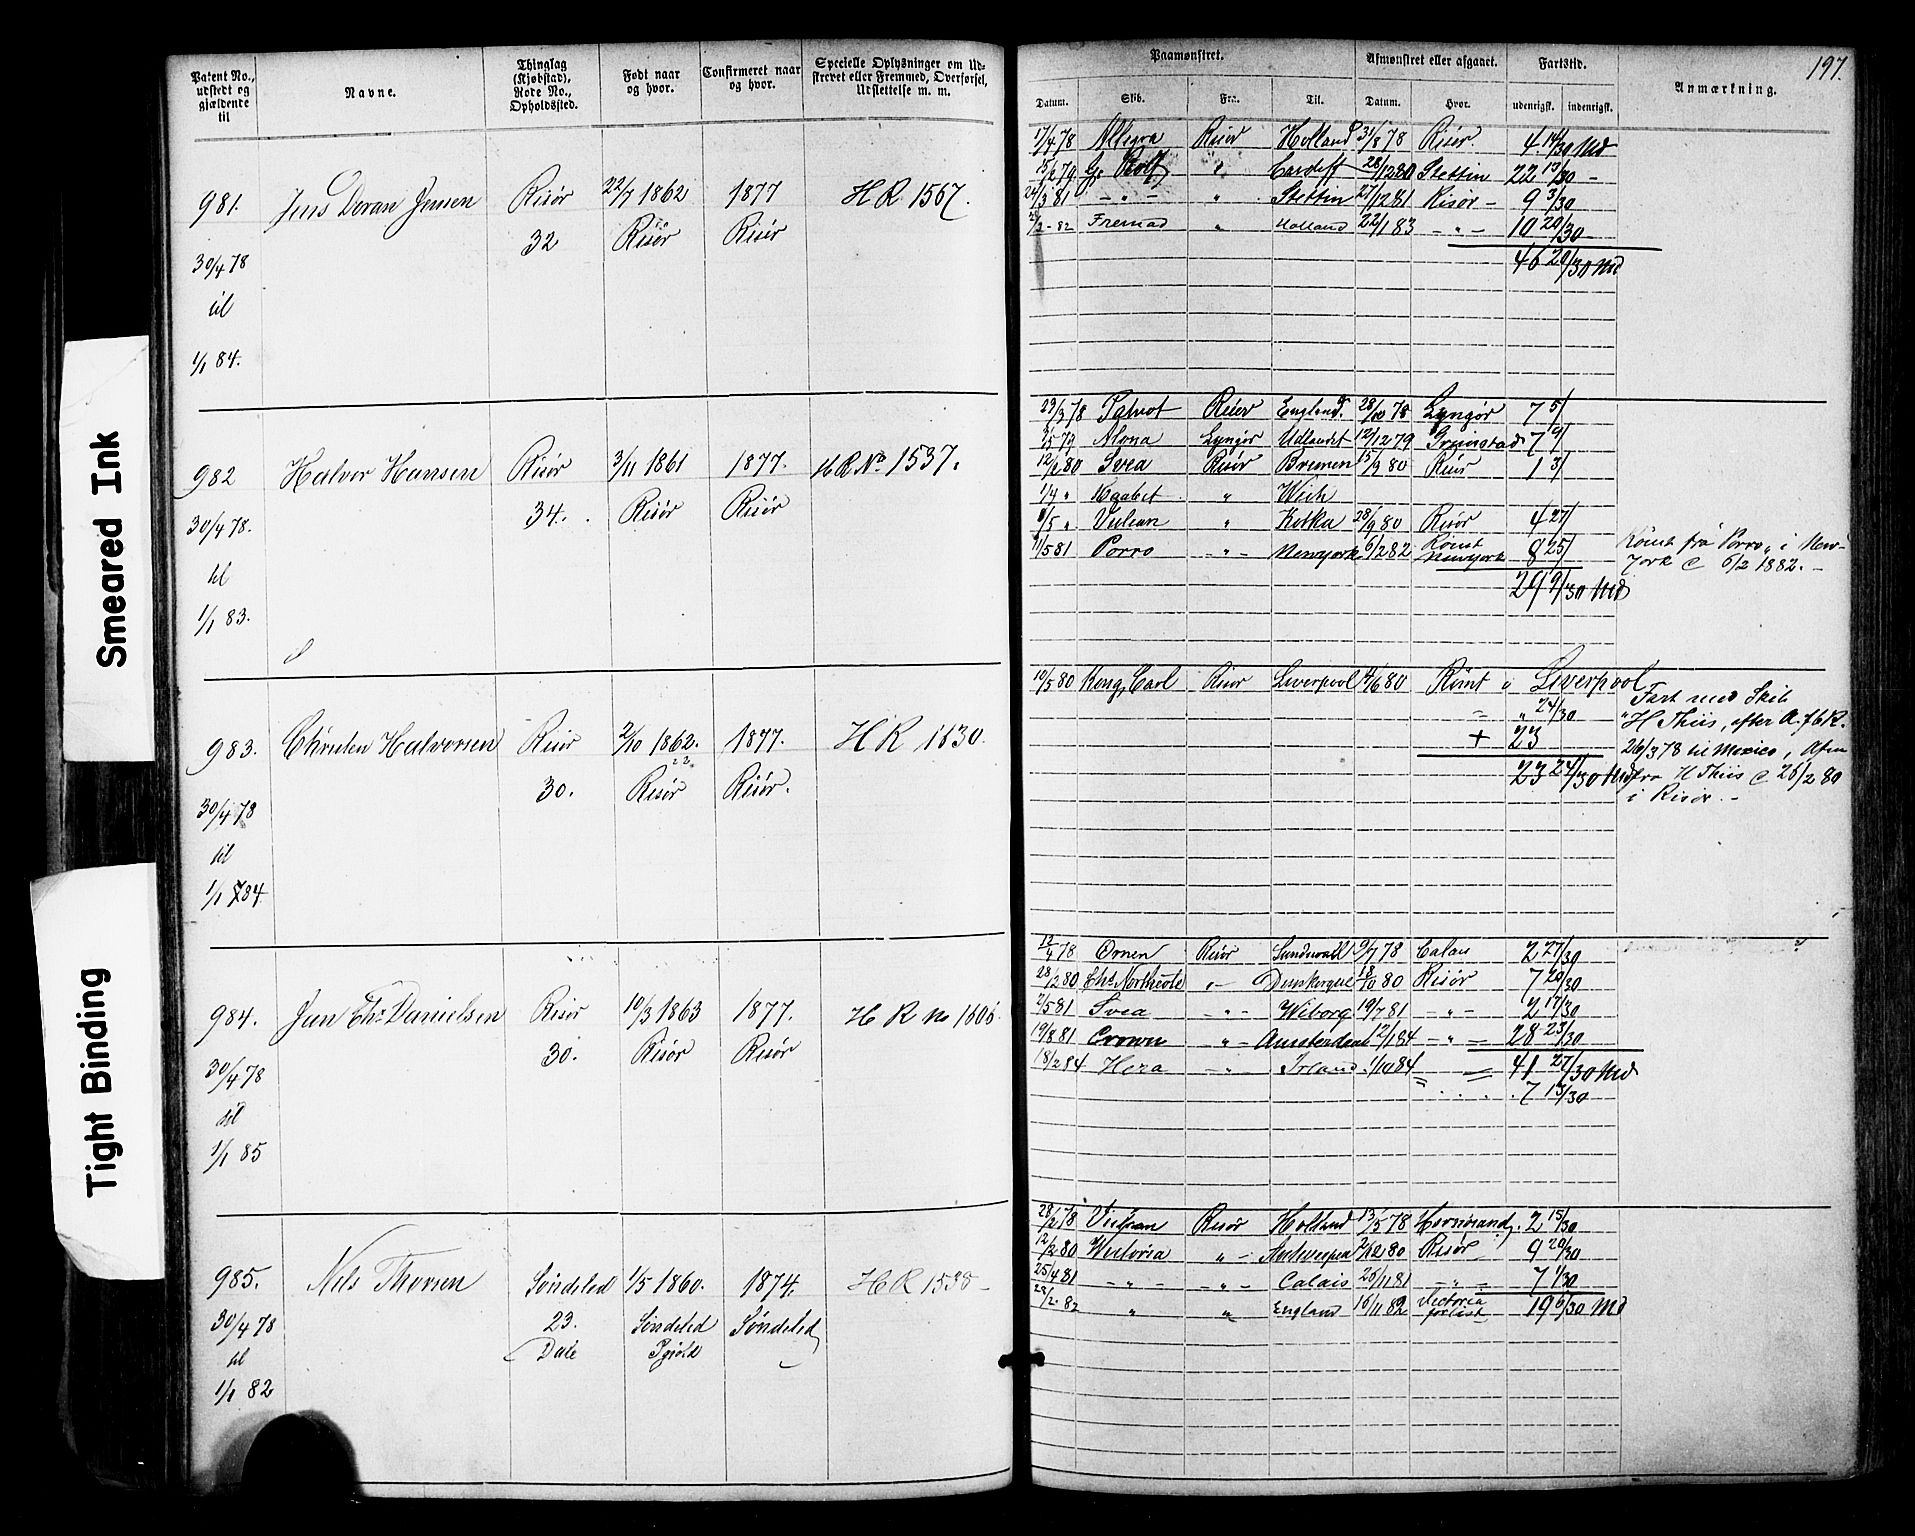 Patent No., udstedt og gjældende til
Navne.
Thinglag (Kjøbstad), Rode No., Opholdssted.
Født naar og hvor.
Confirmeret naar og hvor.
Specielle Oplysninger om Udskrevet eller Fremmed, Overførsel, Udslettelse m. m.
Paamønstret.
Afmønstret eller afgaaet.
Fartstid.
197.
Datum. Skib. Fra. Til. Datum. Hvor. udenrigsk. indenrigsk. Anmærkning.
Smeared Ink
Tight Binding
981. Jens Doran Jensen Risør 22/7 1862 1877 H R 1567.
32 Risör Risör
30/4 78
til
1/1 84.
17/4 78 Allegra Risør Holland 31/8 78 Risør. 4 14/30 Md
15/2 79 Rolf " Cardiff 28/12 80 Stettin 22 13/30 -
24/3 81 - " - " Stettin 27/12 81 Risør - 9 3/30
/2 - 82 Fremad " Holland 22/1 83 - " - 10 20/30
46 20/30 Md
982 Halvor Hansen Risør 3/11 1861 1877. H R No 1537.
34. Risör Risör
30/4 78.
til
1/1 83.
23/3 78 Patriot Risør England. 28/10 78 Lyngør 7 5/
/5 79 Alona Lyngør Udlandet 12/12 79 Grimstad 7 9/
12/2 80 Svea Risør Bremen 15/ 80 Risør 1 3/
1/4 " " Wich
/5 " Vulcan " Kotka 28/9 80 Risør 4 27/
11/5 81 Porro - " - Newyork 6/2 82 Rømt Newyork 8 25/
29 9/30 Md
Rømt frå Porro, i New-
york d 6/2 1882. -
983. Christen Halvorsen Risør 2/10 1862. 1877. H R 1630.
30. Risør Risør.
30/4 78
til
1/1 84
10/5 80 Kong Carl Risør Liverpool /6 80 Rømt i Liverpool
= " 24/30
+ 23
23 24/30 Md
Fart med Skib
"H Thiis, efter A. f 6 R.
26/3 78 til Mexico, Afm
fra H Thiis d 26/2 80
i Risør. -
984. Jan Chr Danielsen Risør 10/3 1863 1877. H R no 1606.
30. Risør Risør
30/4 78
til
1/1 85
12/4 78 Ørnen Risør Sundsvall 9/7 78 Calais 2 27/30
28/2 80 Northcote " - Dunkerque 18/10 80 Risør 7 20/30
2/5 81 Svea - " - Wiborg 19/7 81 - " - 2 17/30
19/8 81 Crown " - Amsterdam 12/1 84 - " - 28 23/30
18/2 84 Hera - " - Irland 1/10 84 = 41 27/30 Md
7 13/30
985. Nels Thorsen Søndeled 1/5 1860. 1874. H R 1538 -
23. Søndeled Søndeled
Dale
30/4 78
til
1/1 82
28/2 78 Vulcan Risør Holland 13/5 78 Hernösand. 2 15/30
12/2 80 Victoria " - Antwerpen 2/12 80 Risør 9 20/30
25/4 81 - " - - " - Calais 26/11 81 - " - 7 1/30
/2 - 82 " " England 16/11 82 Victoria forlist 19 6/30 Md